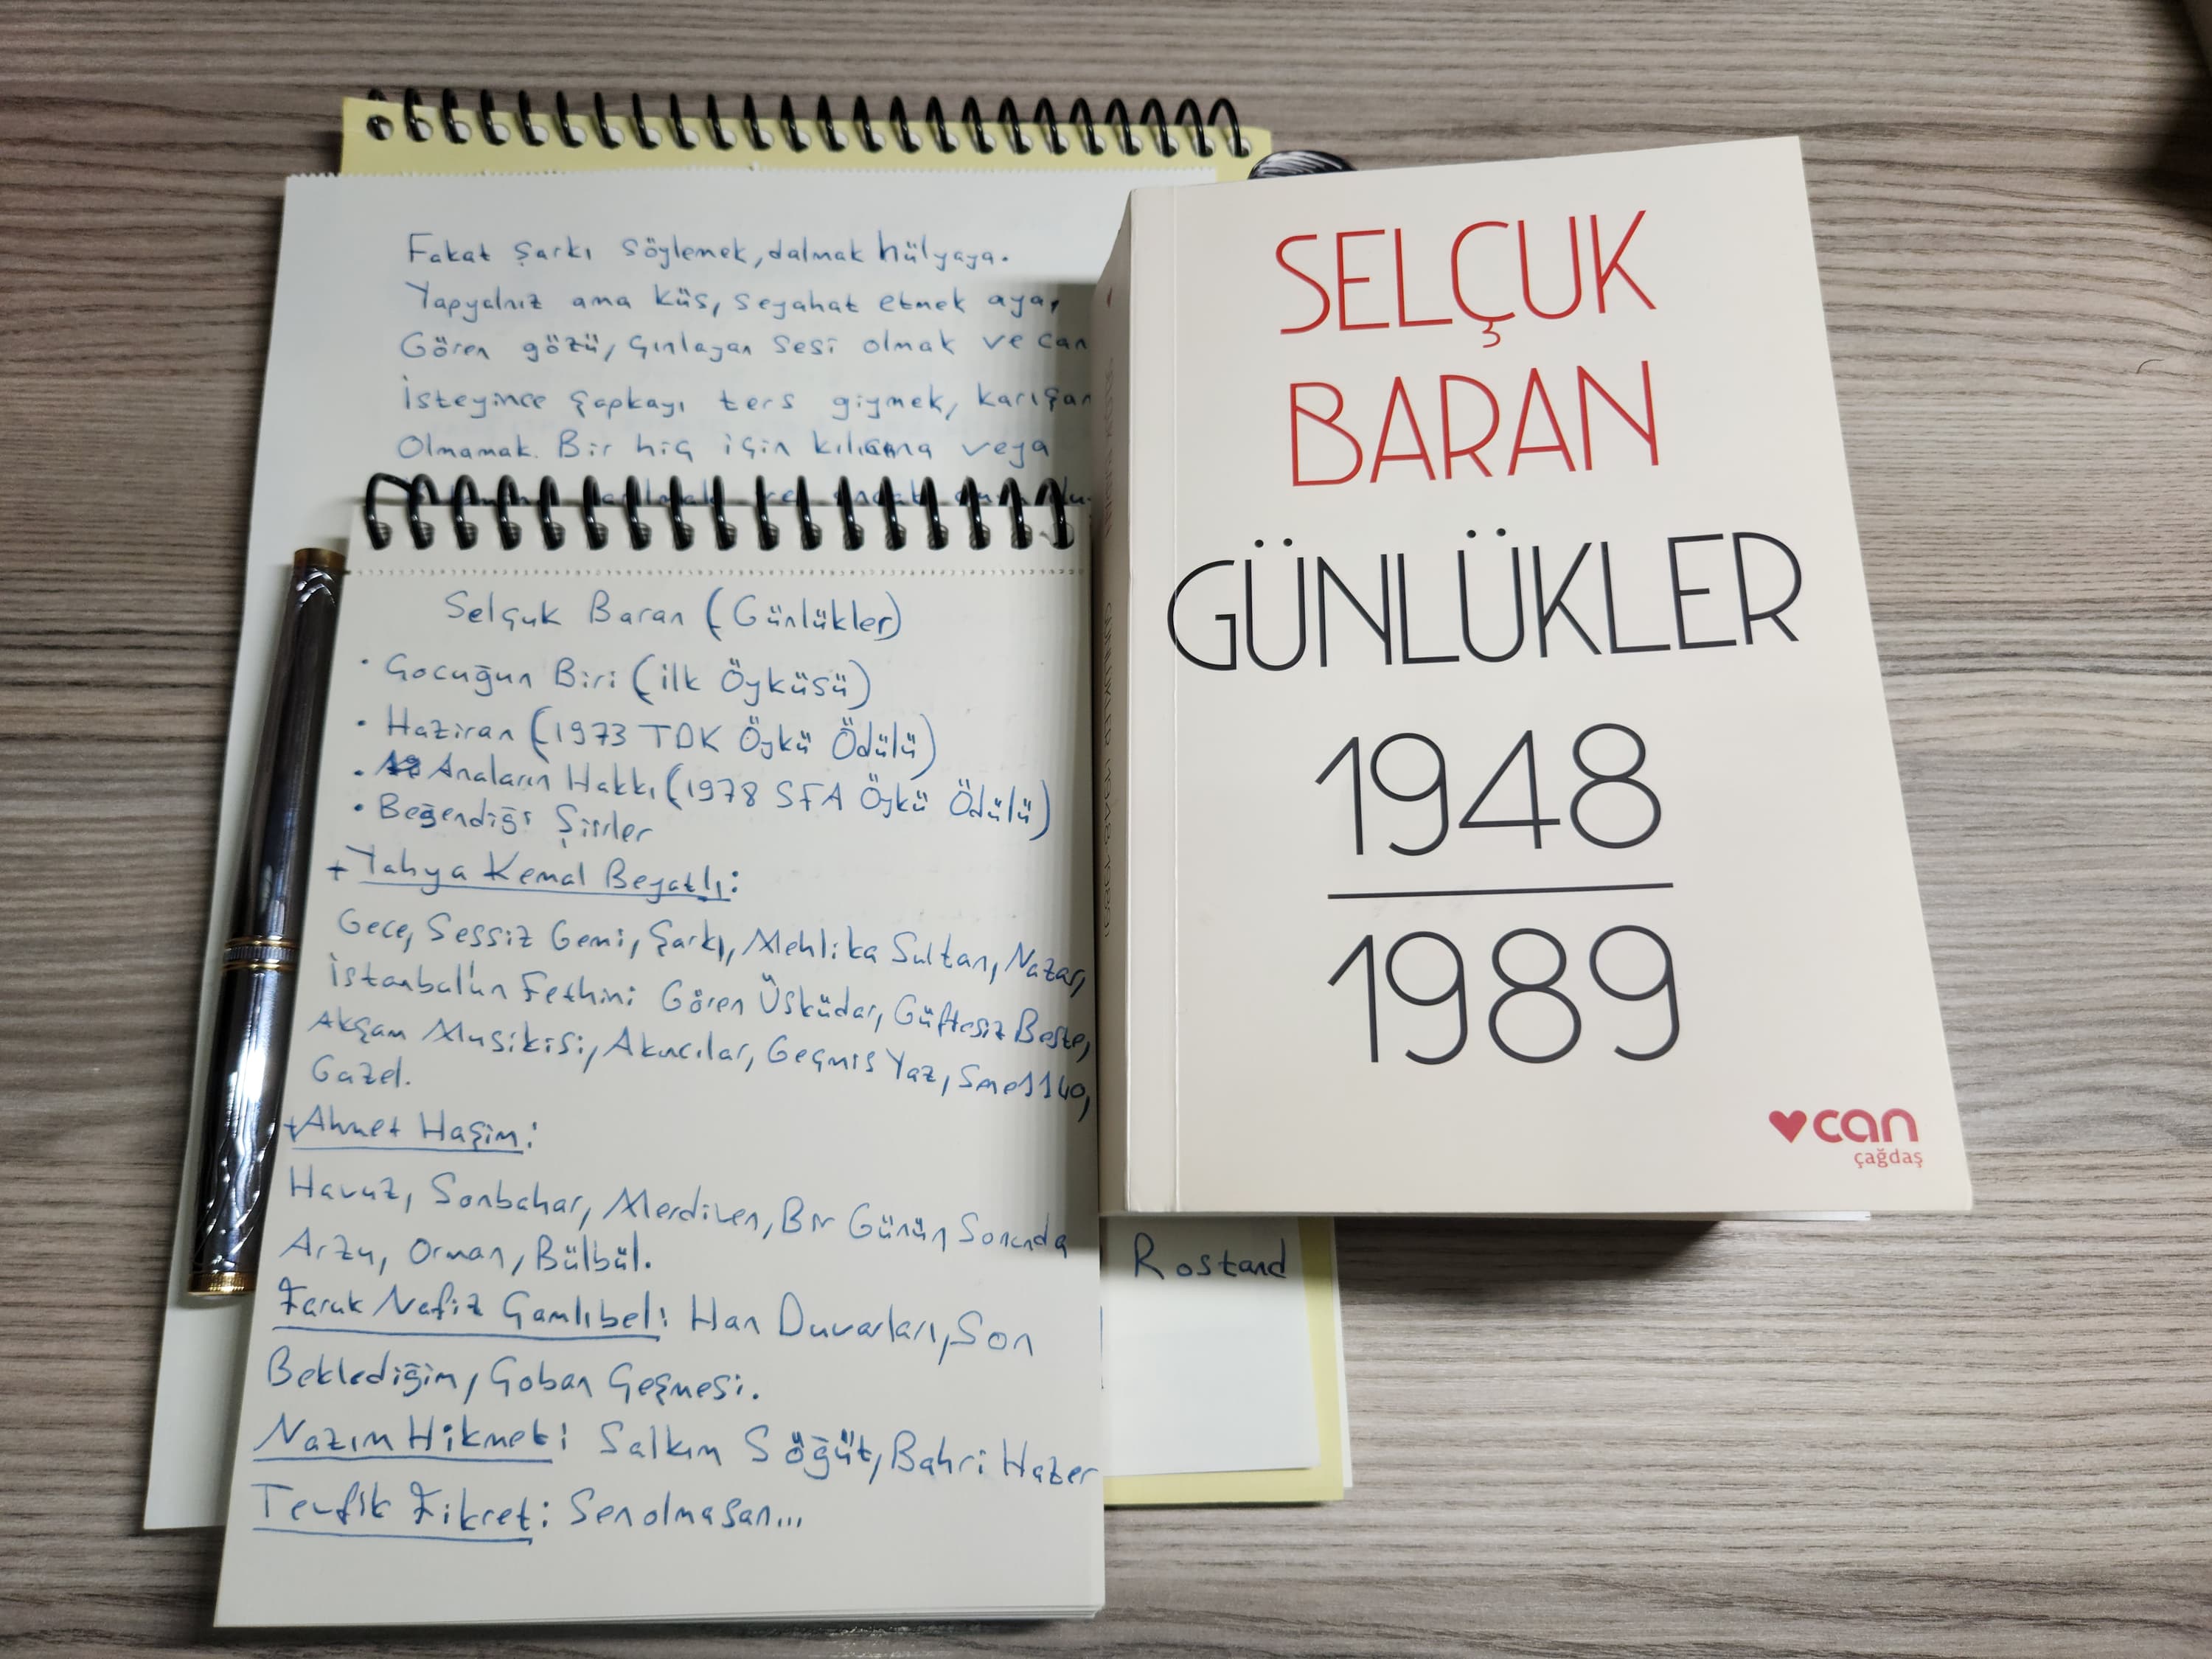 Fakat Şarkı Söylemek, dalmak hülyaya.
Yapyalnız ama küs, seyahat etmek aya,
Gören gözü, Çınlayan Sesi olmak ve can
İsteyince Şapkayı ters giymek, karışan
Olmamak. Bir hiç için kılıcına veya
Selçuk Baran (Günlükler)
• Çocuğun Biri (ilk Öyküsü)
• Haziran (1973 TDK Öykü Ödülü)
• Anaların Hakkı (1978 SFA Öykü Ödülü)
• Beğendiği Şiirler
+ Yahya Kemal Beyatlı:
Gece, Sessiz Gemi, Şarkı, Mehlika Sultan, Nazar,
İstanbul'un Fethini Gören Üsküdar, Güftesiz Beste,
Akşam Musikisi, Akıncılar, Geçmiş Yaz,
Gazel.
+ Ahmet Haşim:
Havuz, Sonbahar, Merdiven, Bir Günün Sonunda
Arzu, Orman, Bülbül.
Faruk Nafiz Çamlıbel: Han Duvarları, Son
Beklediğim, Çoban Çeşmesi.
Nazım Hikmet: Salkım Söğüt, Bahri Hazer
Tevfik Fikret: Sen olmasan...
Rostand
SELÇUK
BARAN
GÜNLÜKLER
1948
1989
can
çağdaş